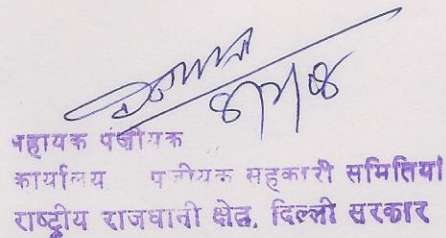 8/1/08
सहायक पंजीयक
कार्यालय पंजीयक सहकारी समितियां
राष्ट्रीय राजधानी क्षेत्र, दिल्ली सरकार